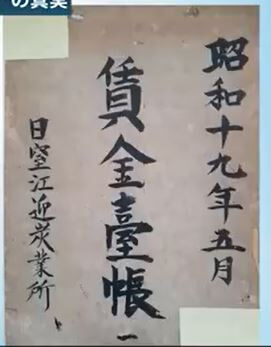 の真実
昭和十九年五月
賃金臺帳
日窒江迎炭業所